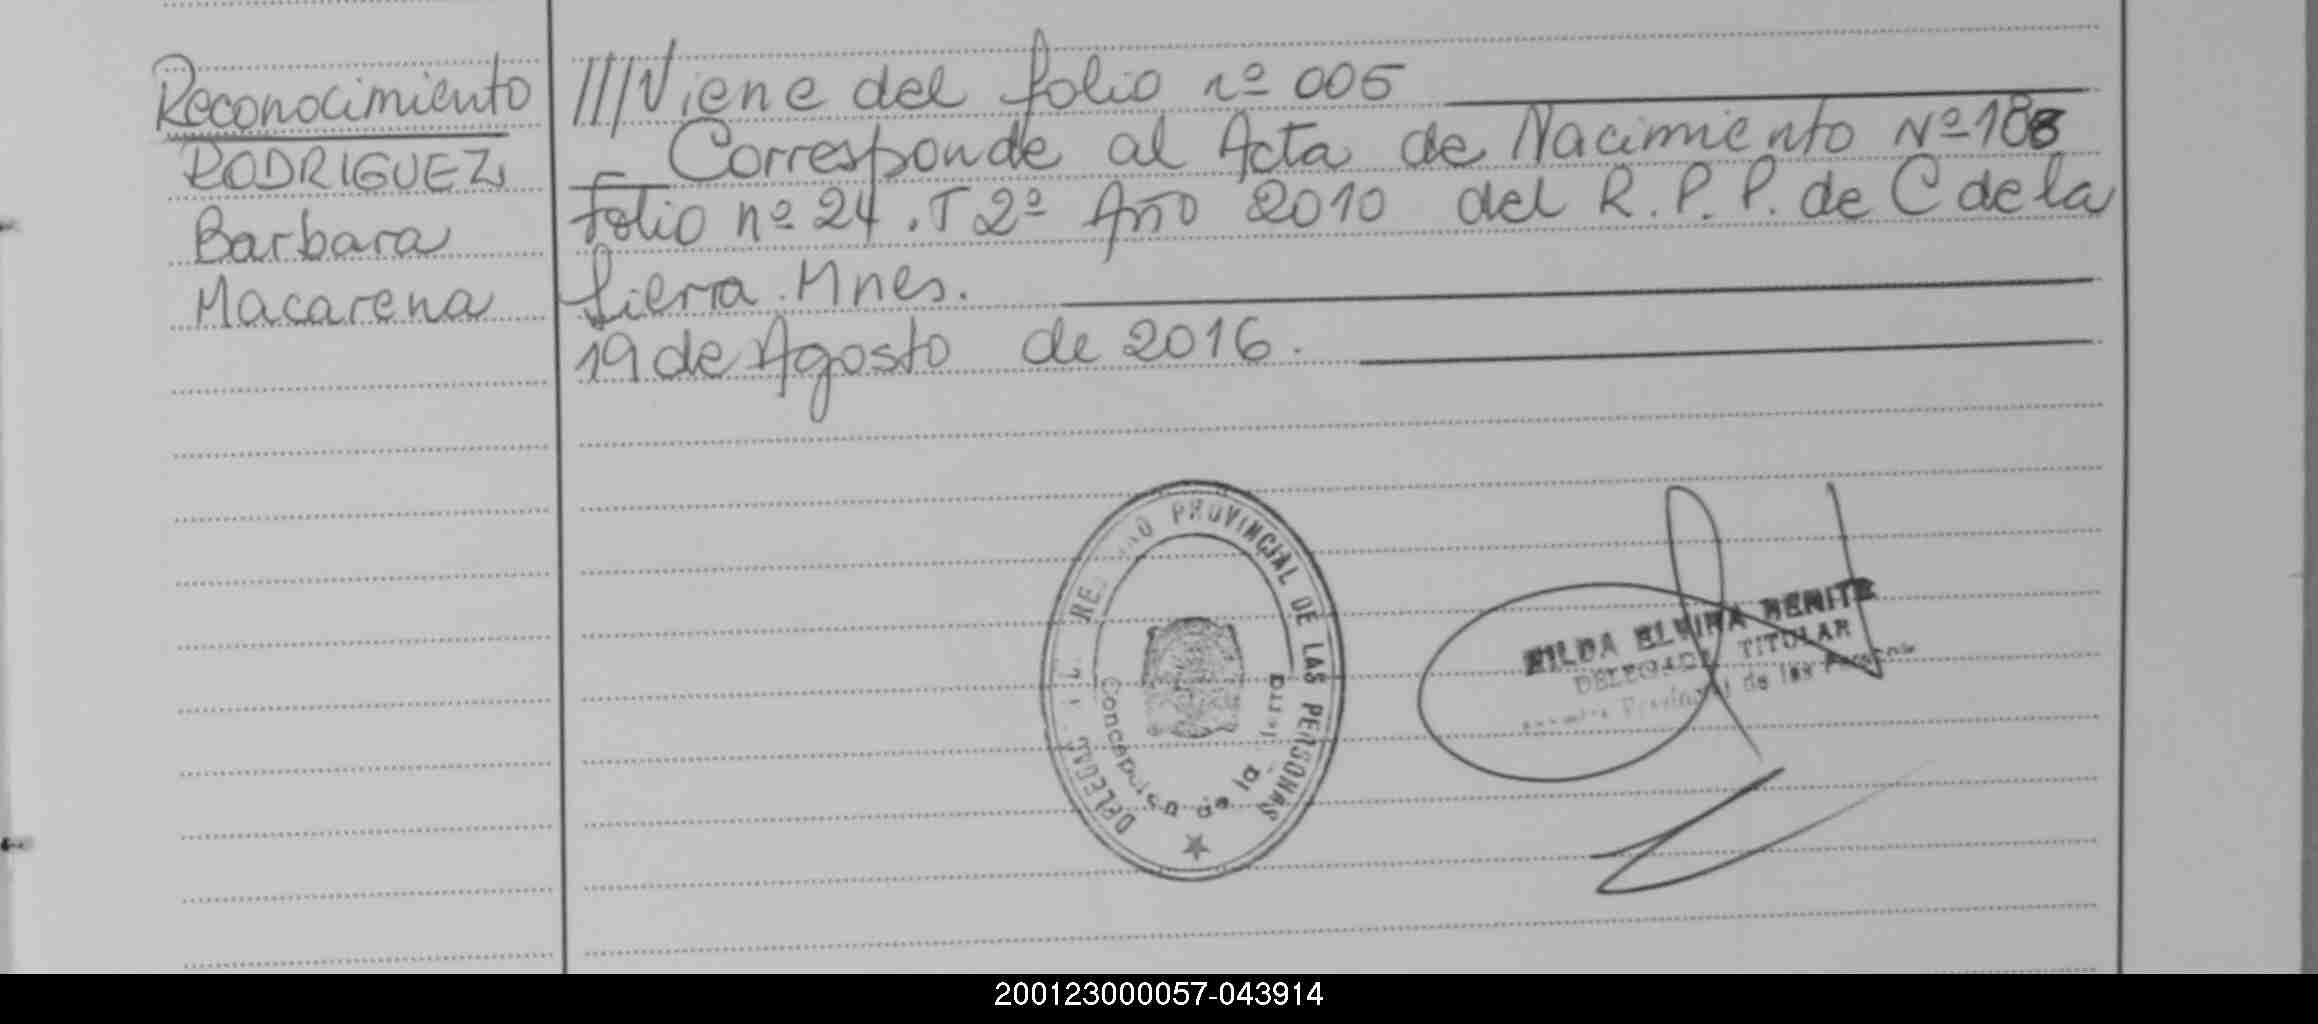 Reconocimiento
RODRIGUEZ
Barbara
Macarena
///Viene del folio nº 005
Corresponde al Acta de Nacimiento Nº 188
folio nº 24 . T 2º Año 2010 del R. P. P. de C de la
Sierra . Mnes.
19 de Agosto de 2016.
PROVINCIAL DE LAS PERSONAS
de la
HILDA ELVIRA BENITE
DELEGADA TITULAR
de las
200123000057-043914